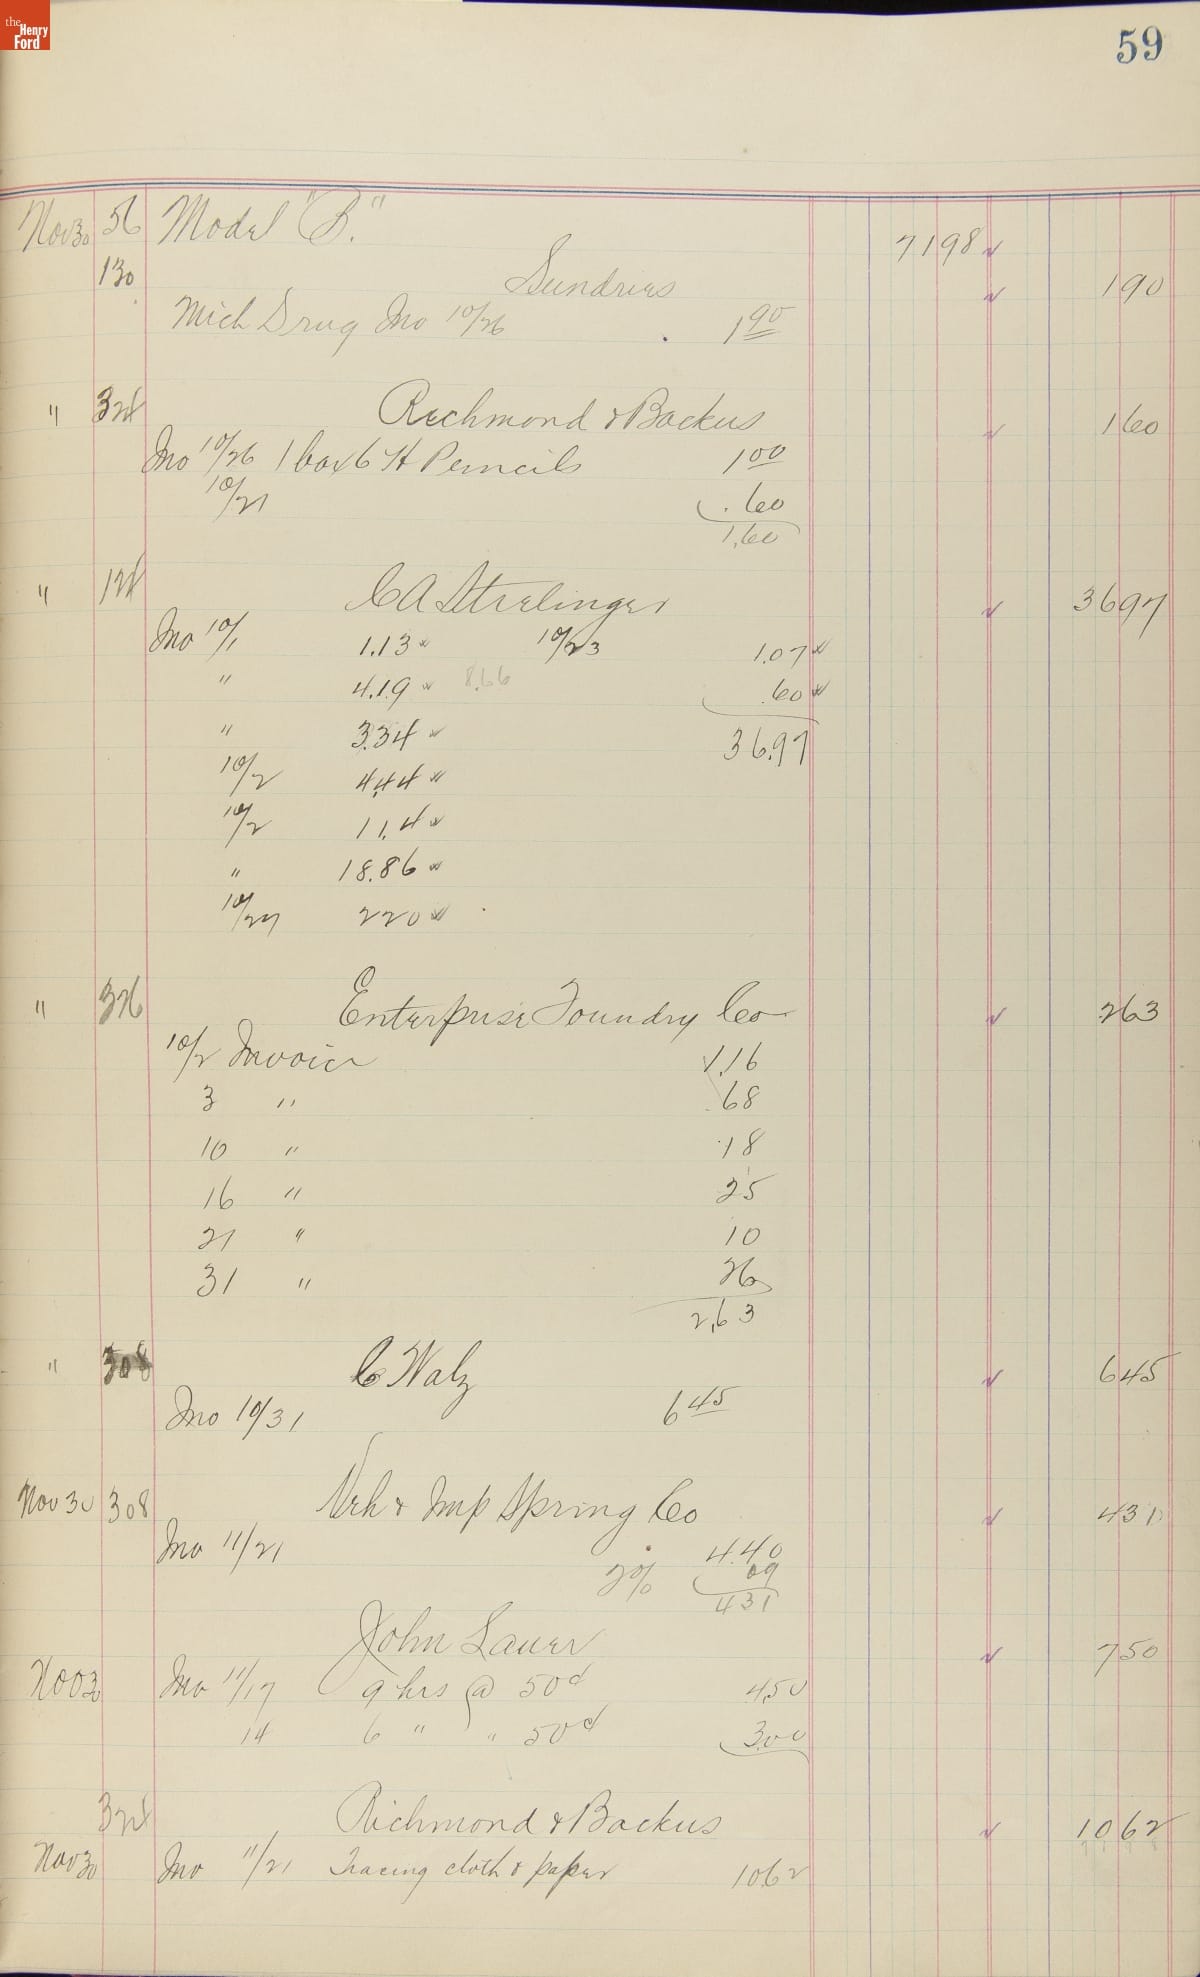 the Henry Ford
59
Nov 30 56 Model "B." 7198
130 Sundries 190
Mich Drug Inv 10/26 1 90
" 328 Richmond & Backus 160
Inv 10/26 1 box 6 H Pencils 1 00
10/21 .60
1.60
" 128 C A Strelinger 3697
Inv 10/1 1.13 10/23 1.07
" 4.19 8.66 .60
" 3.34 36.97
10/2 4.44
10/2 11.4
" 18.86
10/27 220
" 326 Enterprise Foundry Co 263
10/2 Invoice 1.16
3 " .68
10 " .18
16 " 25
21 " 10
31 " 26
2,63
" 308 C Walz 645
Inv 10/31 6 45
Nov 30 308 & Imp Spring Co 431
Inv 11/21 4.40
2% 09
431
John Lauer 750
Nov 30 Inv 11/17 9 hrs @ 50¢ 4.50
14 6 " " 50¢ 3.00
328 Richmond & Backus 1062
Nov 30 Inv 11/21 Tracing cloth & paper 10.62